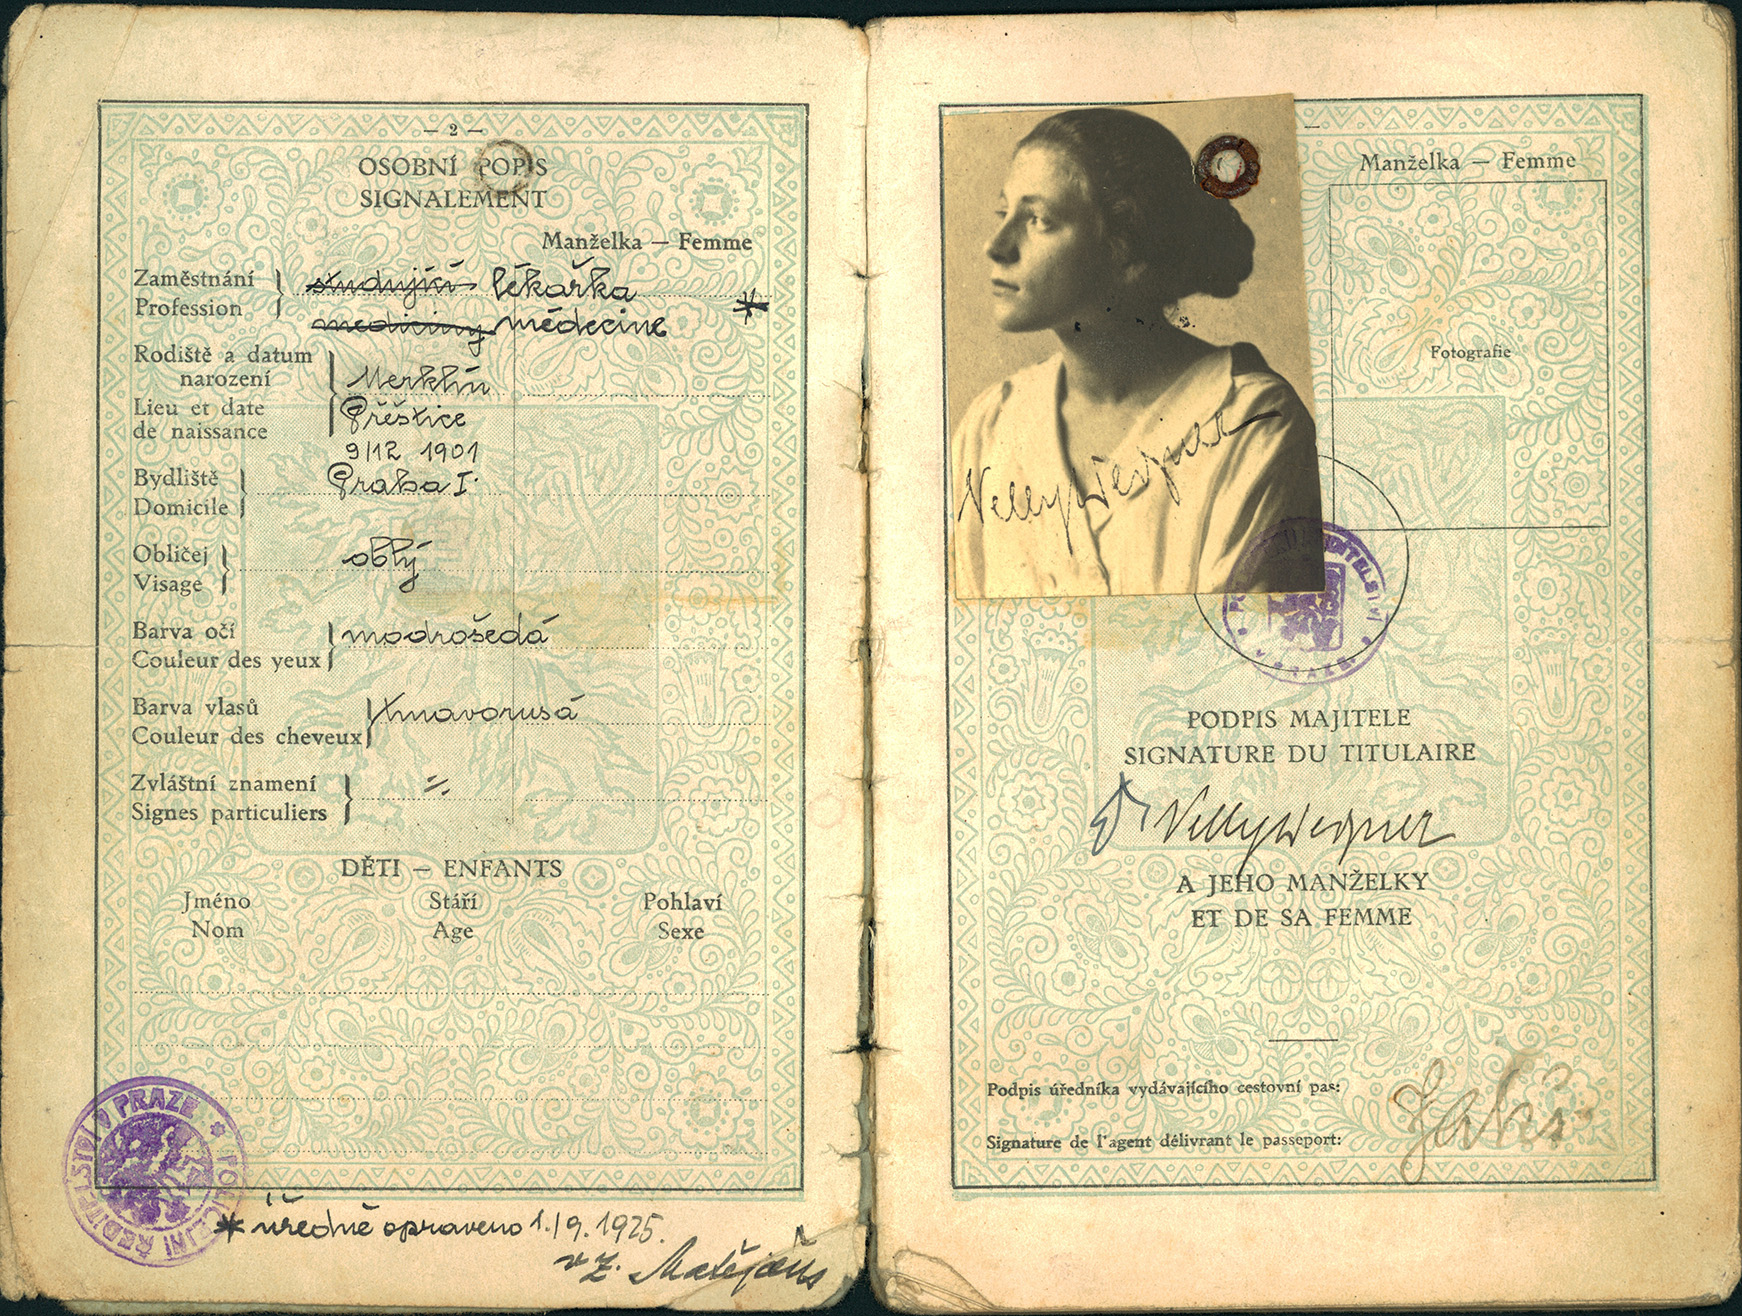 — 2 —
OSOBNÍ POPIS
SIGNALEMENT
Manželka — Femme
Zaměstnání
Profession
studující lékařka
mediciny médecine *
Rodiště a datum
narození
Lieu et date
de naissance
Merklín
Přeštice
9/12 1901
Bydliště
Domicile
Praha I.
Obličej
Visage
oblý
Barva očí
Couleur des yeux
modrošedá
Barva vlasů
Couleur des cheveux
tmavorusá
Zvláštní znamení
Signes particuliers
=.
DĚTI — ENFANTS
Jméno Stáří Pohlaví
Nom Age Sexe
POLICEJNÍ ŘEDITELSTVÍ V PRAZE
* úředně opraveno 1./9. 1925.
v z. Matějček
Manželka — Femme
Fotografie
Nelly Wegner
ŘEDITELSTVÍ
V PRAZE
PODPIS MAJITELE
SIGNATURE DU TITULAIRE
Dr Nelly Wegner
A JEHO MANŽELKY
ET DE SA FEMME
Podpis úředníka vydávajícího cestovní pas:
Signature de l'agent délivrant le passeport: